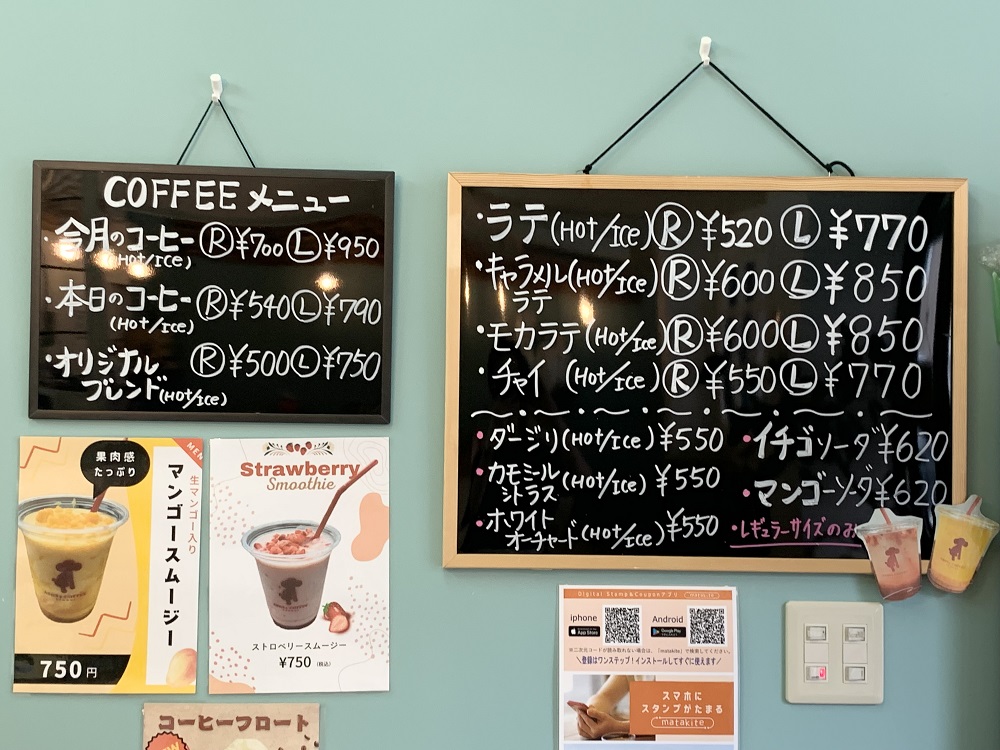 COFFEE メニュー
今月のコーヒー Ⓡ¥700 Ⓛ¥950
(HOT/ICE)
本日のコーヒー Ⓡ¥540 Ⓛ¥790
(Hot/Ice)
・オリジナル Ⓡ¥500 Ⓛ¥750
ブレンド(HOT/ICE)
・ラテ(HOT/ICE) Ⓡ¥520 Ⓛ¥770
・キャラメル(HOT/ICE) Ⓡ¥600 Ⓛ¥850
ラテ
・モカラテ(Hot/Ice) Ⓡ¥600 Ⓛ¥850
・チャイ (Hot/Ice) Ⓡ¥550 Ⓛ¥770
・ダージリ(Hot/Ice) ¥550
・カモミール(Hot/Ice) ¥550
シトラス
・ホワイト
オーチャード(Hot/Ice) ¥550
・イチゴソーダ¥620
・マンゴーソーダ¥620
・レギュラーサイズのみ
果肉感
たっぷり
生マンゴー入り
マンゴースムージー
750円
Strawberry
Smoothie
ストロベリースムージー
¥750 (税込)
コーヒーフロート
Digital Stamp&Couponアプリ matakite
iphone Android
App Store Google Play
※二次元コードが読み取れない場合は、「matakite」で検索してください。
\登録はワンステップ!インストールしてすぐに使えます/
スマホに
スタンプがたまる
matakite